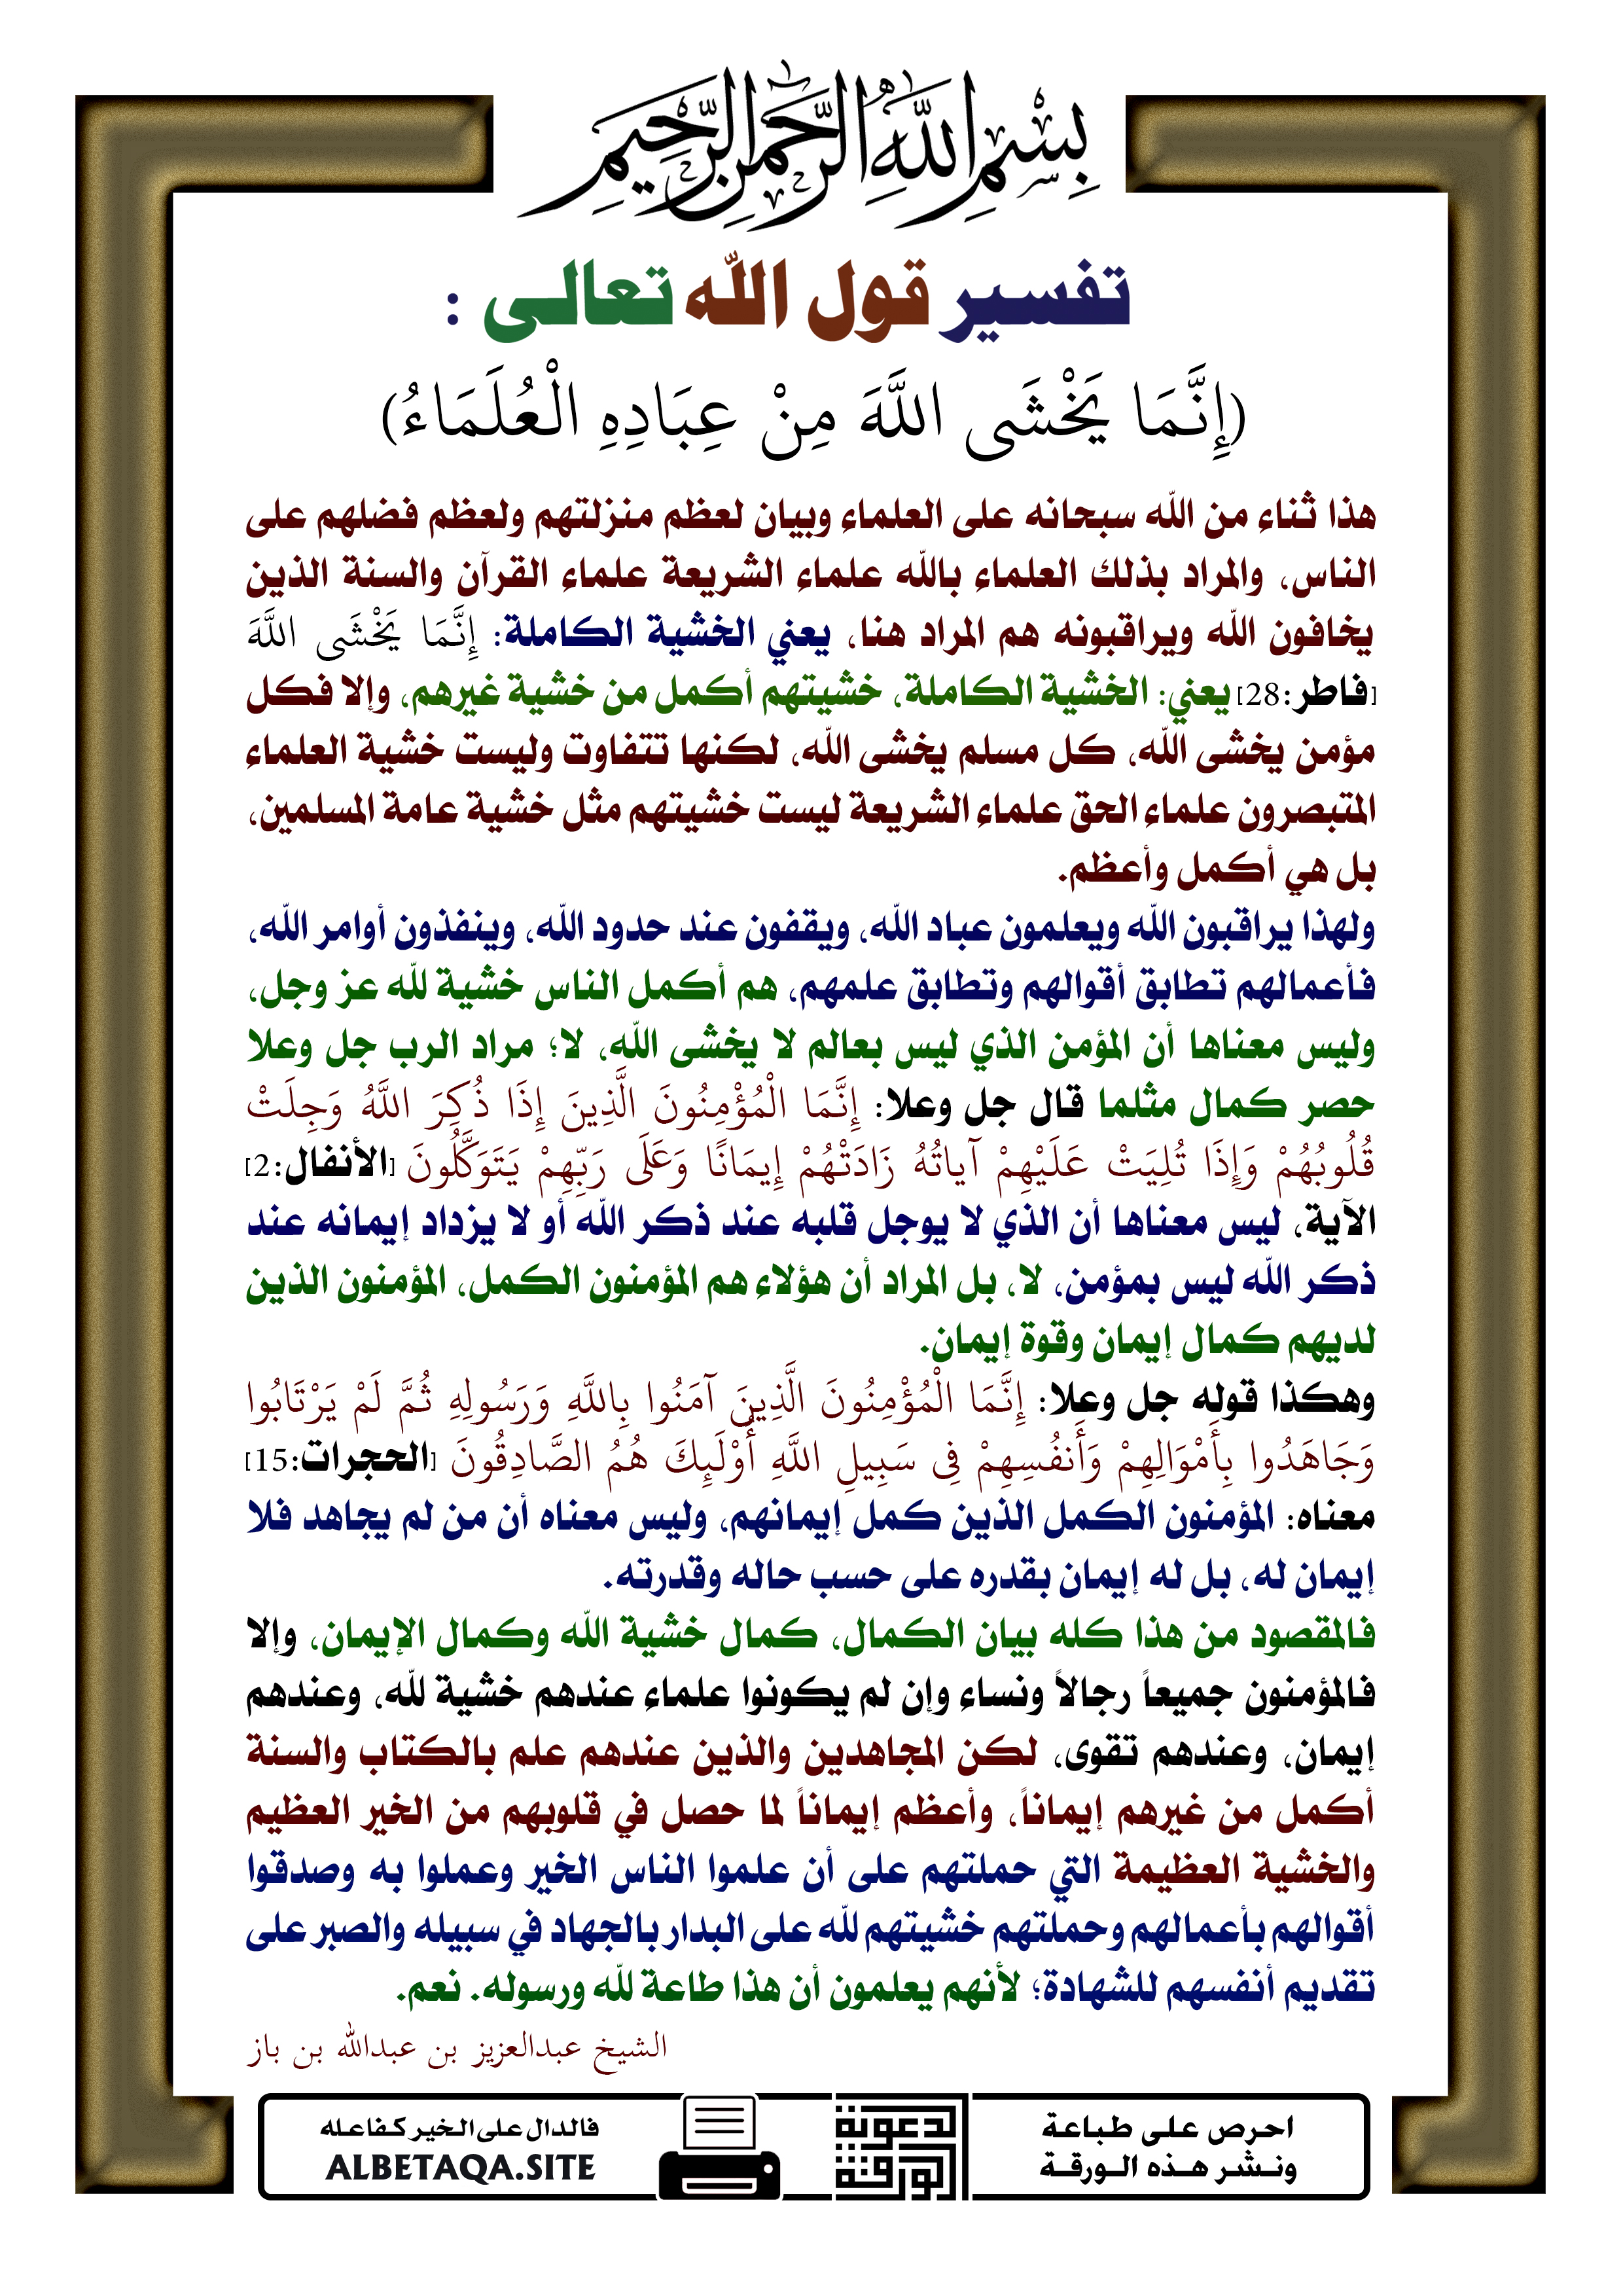 بِسْمِ اللَّهِ الرَّحْمَٰنِ الرَّحِيمِ
تفسير قول الله تعالى :
(إِنَّمَا يَخْشَى اللَّهَ مِنْ عِبَادِهِ الْعُلَمَاءُ)
هذا ثناء من الله سبحانه على العلماء وبيان لعظم منزلتهم ولعظم فضلهم على
الناس، والمراد بذلك العلماء بالله علماء الشريعة علماء القرآن والسنة الذين
يخافون الله ويراقبونه هم المراد هنا، يعني الخشية الكاملة: إِنَّمَا يَخْشَى اللَّهَ
[فاطر:28] يعني: الخشية الكاملة، خشيتهم أكمل من خشية غيرهم، وإلا فكل
مؤمن يخشى الله، كل مسلم يخشى الله، لكنها تتفاوت وليست خشية العلماء
المتبصرون علماء الحق علماء الشريعة ليست خشيتهم مثل خشية عامة المسلمين،
بل هي أكمل وأعظم.
ولهذا يراقبون الله ويعلمون عباد الله، ويقفون عند حدود الله، وينفذون أوامر الله،
فأعمالهم تطابق أقوالهم وتطابق علمهم، هم أكمل الناس خشية لله عز وجل،
وليس معناها أن المؤمن الذي ليس بعالم لا يخشى الله، لا؛ مراد الرب جل وعلا
حصر كمال مثلما قال جل وعلا: إِنَّمَا الْمُؤْمِنُونَ الَّذِينَ إِذَا ذُكِرَ اللَّهُ وَجِلَتْ
قُلُوبُهُمْ وَإِذَا تُلِيَتْ عَلَيْهِمْ آيَاتُهُ زَادَتْهُمْ إِيمَانًا وَعَلَى رَبِّهِمْ يَتَوَكَّلُونَ [الأنفال:2]
الآية، ليس معناها أن الذي لا يوجل قلبه عند ذكر الله أو لا يزداد إيمانه عند
ذكر الله ليس بمؤمن، لا، بل المراد أن هؤلاء هم المؤمنون الكمل، المؤمنون الذين
لديهم كمال إيمان وقوة إيمان.
وهكذا قوله جل وعلا: إِنَّمَا الْمُؤْمِنُونَ الَّذِينَ آمَنُوا بِاللَّهِ وَرَسُولِهِ ثُمَّ لَمْ يَرْتَابُوا
وَجَاهَدُوا بِأَمْوَالِهِمْ وَأَنفُسِهِمْ فِي سَبِيلِ اللَّهِ أُوْلَئِكَ هُمُ الصَّادِقُونَ [الحجرات:15]
معناه: المؤمنون الكمل الذين كمل إيمانهم، وليس معناه أن من لم يجاهد فلا
إيمان له، بل له إيمان بقدره على حسب حاله وقدرته.
فالمقصود من هذا كله بيان الكمال، كمال خشية الله وكمال الإيمان، وإلا
فالمؤمنون جميعاً رجالاً ونساء وإن لم يكونوا علماء عندهم خشية لله، وعندهم
إيمان، وعندهم تقوى، لكن المجاهدين والذين عندهم علم بالكتاب والسنة
أكمل من غيرهم إيماناً، وأعظم إيماناً لما حصل في قلوبهم من الخير العظيم
والخشية العظيمة التي حملتهم على أن علموا الناس الخير وعملوا به وصدقوا
أقوالهم بأعمالهم وحملتهم خشيتهم لله على البدار بالجهاد في سبيله والصبر على
تقديم أنفسهم للشهادة؛ لأنهم يعلمون أن هذا طاعة لله ورسوله. نعم.
الشيخ عبدالعزيز بن عبدالله بن باز
احرص على طباعة
ونشر هذه الورقة
الورقة
الدعوية
فالدال على الخير كفاعله
ALBETAQA.SITE